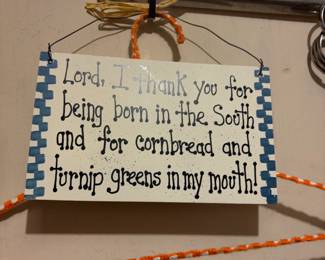 Lord, I thank you for
being born in the South
and for cornbread and
turnip greens in my mouth!